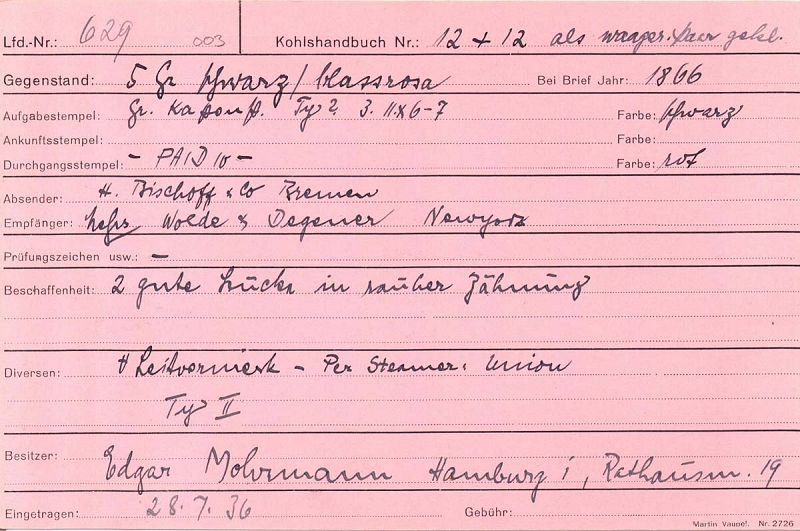 Lfd.-Nr.: 629 003 Kohlshandbuch Nr.: 12 + 12 als waager. Paar gekl.
Gegenstand: 5 Gr schwarz/blassrosa Bei Brief Jahr: 1866
Aufgabestempel: Gr. Ty 2. 3. II.* 6-7 Farbe: schwarz
Ankunftsstempel: Farbe:
Durchgangsstempel: - PAID 10 - Farbe: rot
Absender: H. Bischoff & Co Bremen
Empfänger: Wolde & Degener Newyork
Prüfungszeichen usw.: -
Beschaffenheit: 2 gute Stücke in rauher Zähnung
Diversen: + Leitvermerk - Per Steamer: Union
Ty II
Besitzer: Edgar Mohrmann Hamburg 1, Rathausm. 19
Eingetragen: 28. 7. 36 Gebühr:
Martin Vaupel. Nr. 2726